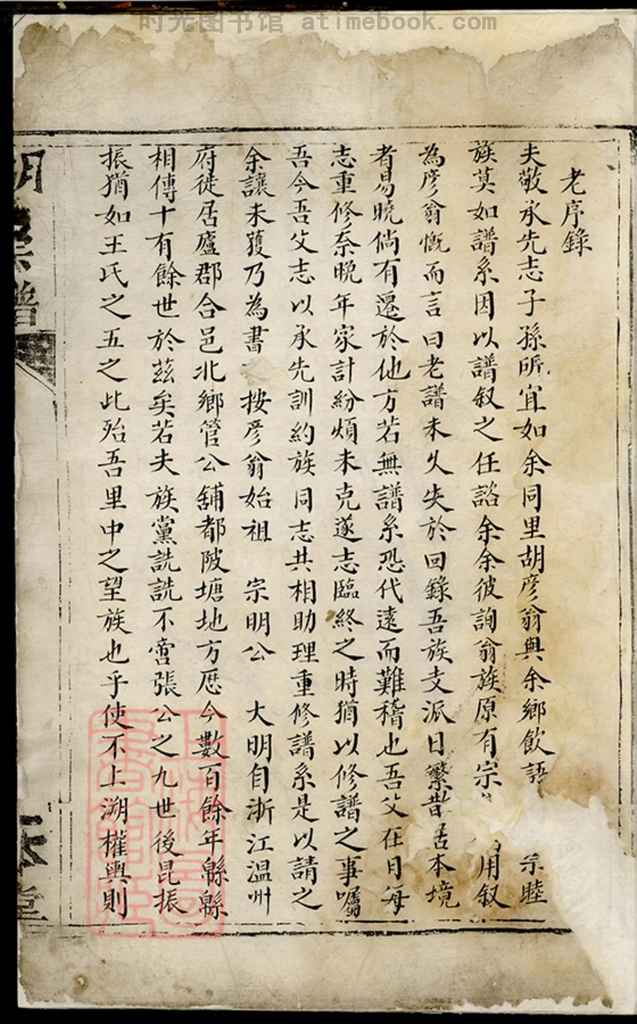 时光图书馆 atimebook.com
老序錄
夫敬承先志子孫所宜如余同里胡彦翁與余鄉飲語 宗睦
族莫如譜系因以譜叙之任諮余余彼詢翁族原有宗 用叙
為彦翁慨而言曰老譜未久失於回錄吾族支派日繁昔居本境
者易曉倘有遷於他方若無譜系恐代遠而難稽也吾父在日每
志重修奈晚年家計紛煩未克遂志臨終之時猶以修譜之事囑
吾今吾父志以承先訓約族同志共相助理重修譜系是以請之
余讓未獲乃為書 按彦翁始祖 宗明公 大明自浙江温州
府徒居廬郡合邑北鄉管公舖都陂塘地方歷今數百餘年緜緜
相傳十有餘世於茲矣若夫族黨詵詵不啻張公之九世後昆振
振猶如王氏之五之此殆吾里中之望族也乎使不上溯權輿則
宗譜
堂